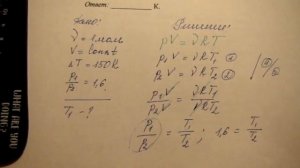 Ответ: К.
Дано:
ν = 1 моль
V = const
ΔT = 150 К
p₁/p₂ = 1,6
T₁ - ?
Решение:
pV = νRT
p₁V = νRT₁ ①
p₂V = νRT₂ ②
①/②
p₁V/p₂V = νRT₁/νRT₂
p₁/p₂ = T₁/T₂ ; 1,6 = T₁/T₂